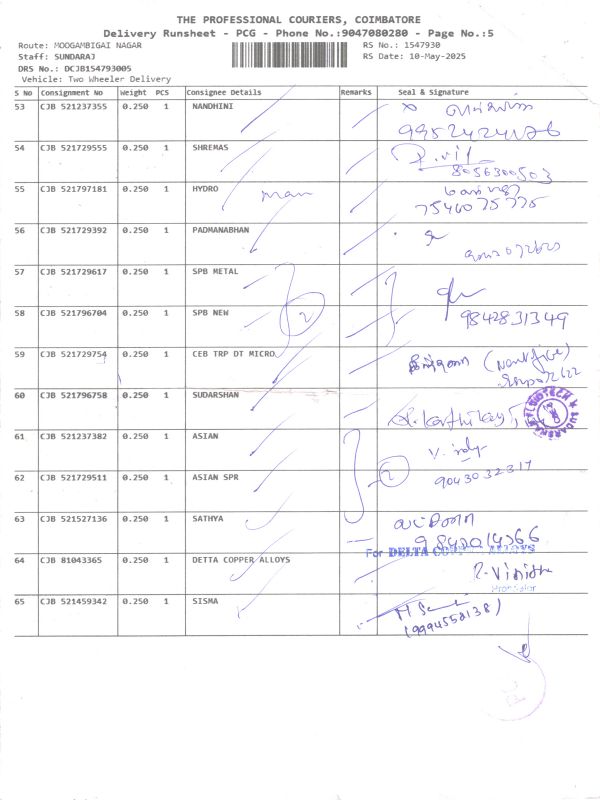 THE PROFESSIONAL COURIERS, COIMBATORE
Delivery Runsheet - PCG - Phone No.:9047080280 - Page No.:5
Route: MOOGAMBIGAI NAGAR RS No.: 1547930
Staff: SUNDARAJ RS Date: 10-May-2025
DRS No.: DCJB154793005
Vehicle: Two Wheeler Delivery
S No Consignment No Weight PCS Consignee Details Remarks Seal & Signature
53 CJB 521237355 0.250 1 NANDHINI
9952424176
54 CJB 521729555 0.250 1 SHREMAS
8056300503
55 CJB 521797181 0.250 1 HYDRO
7546075775
56 CJB 521729392 0.250 1 PADMANABHAN
57 CJB 521729617 0.250 1 SPB METAL
58 CJB 521796704 0.250 1 SPB NEW 2
9842831349
59 CJB 521729754 0.250 1 CEB TRP DT MICRO
60 CJB 521796758 0.250 1 SUDARSHAN
61 CJB 521237382 0.250 1 ASIAN
62 CJB 521729511 0.250 1 ASIAN SPR 2
9043032317
63 CJB 521527136 0.250 1 SATHYA
9842014366
For DELTA COPPER ALLOYS
64 CJB 81043365 0.250 1 DETTA COPPER ALLOYS
Proprietor
65 CJB 521459342 0.250 1 SISMA
(9994558138)